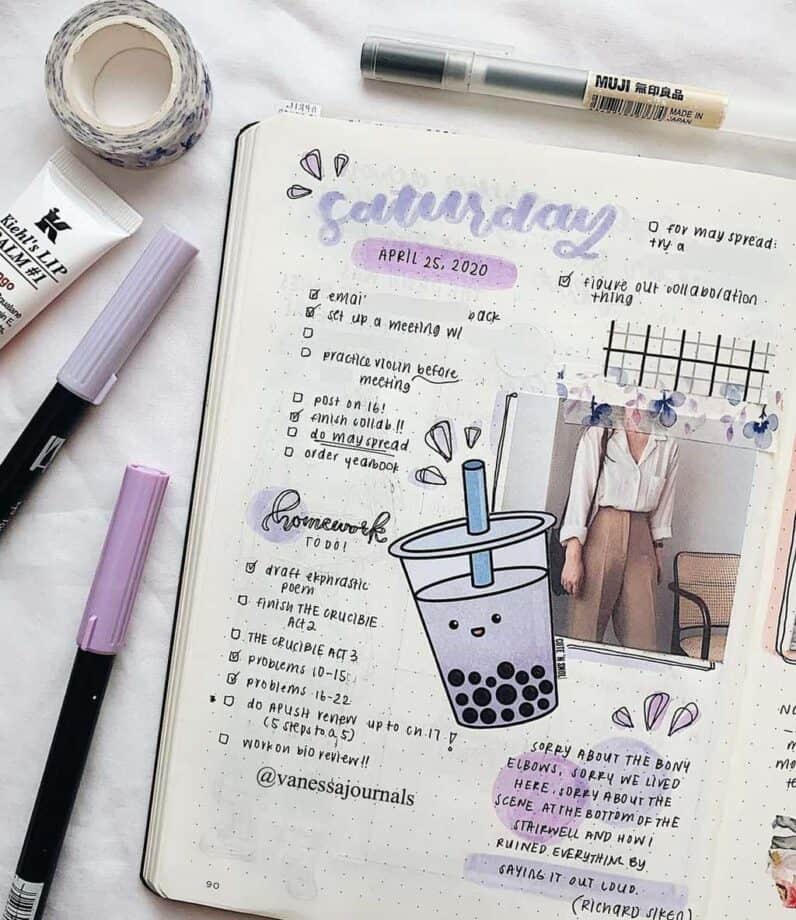 MUJI 無印良品
MADE IN
JAPAN
Kiehl's LIP
BALM #1
saturday
APRIL 25, 2020
for may spread:
try a
figure out collaboration
thing
emai
back
set up a meeting w/
practice violin before
meeting
post on 16!
finish collab!!
do may spread
order yearbook
homework
TO DO!
draft ekphrastic
poem
finish THE CRUCIBLE
ACT 2
THE CRUCIBLE ACT 3
problems 10-15
problems 16-22
do APUSH review up to ch. 17!
(5 steps to a 5)
work on bio review!!
@vanessajournals
SORRY ABOUT THE BONY
ELBOWS, SORRY WE LIVED
HERE, SORRY ABOUT THE
SCENE AT THE BOTTOM OF THE
STAIRWELL AND HOW I
RUINED EVERYTHING BY
SAYING IT OUT LOUD.
(RICHARD SIKEN)
90